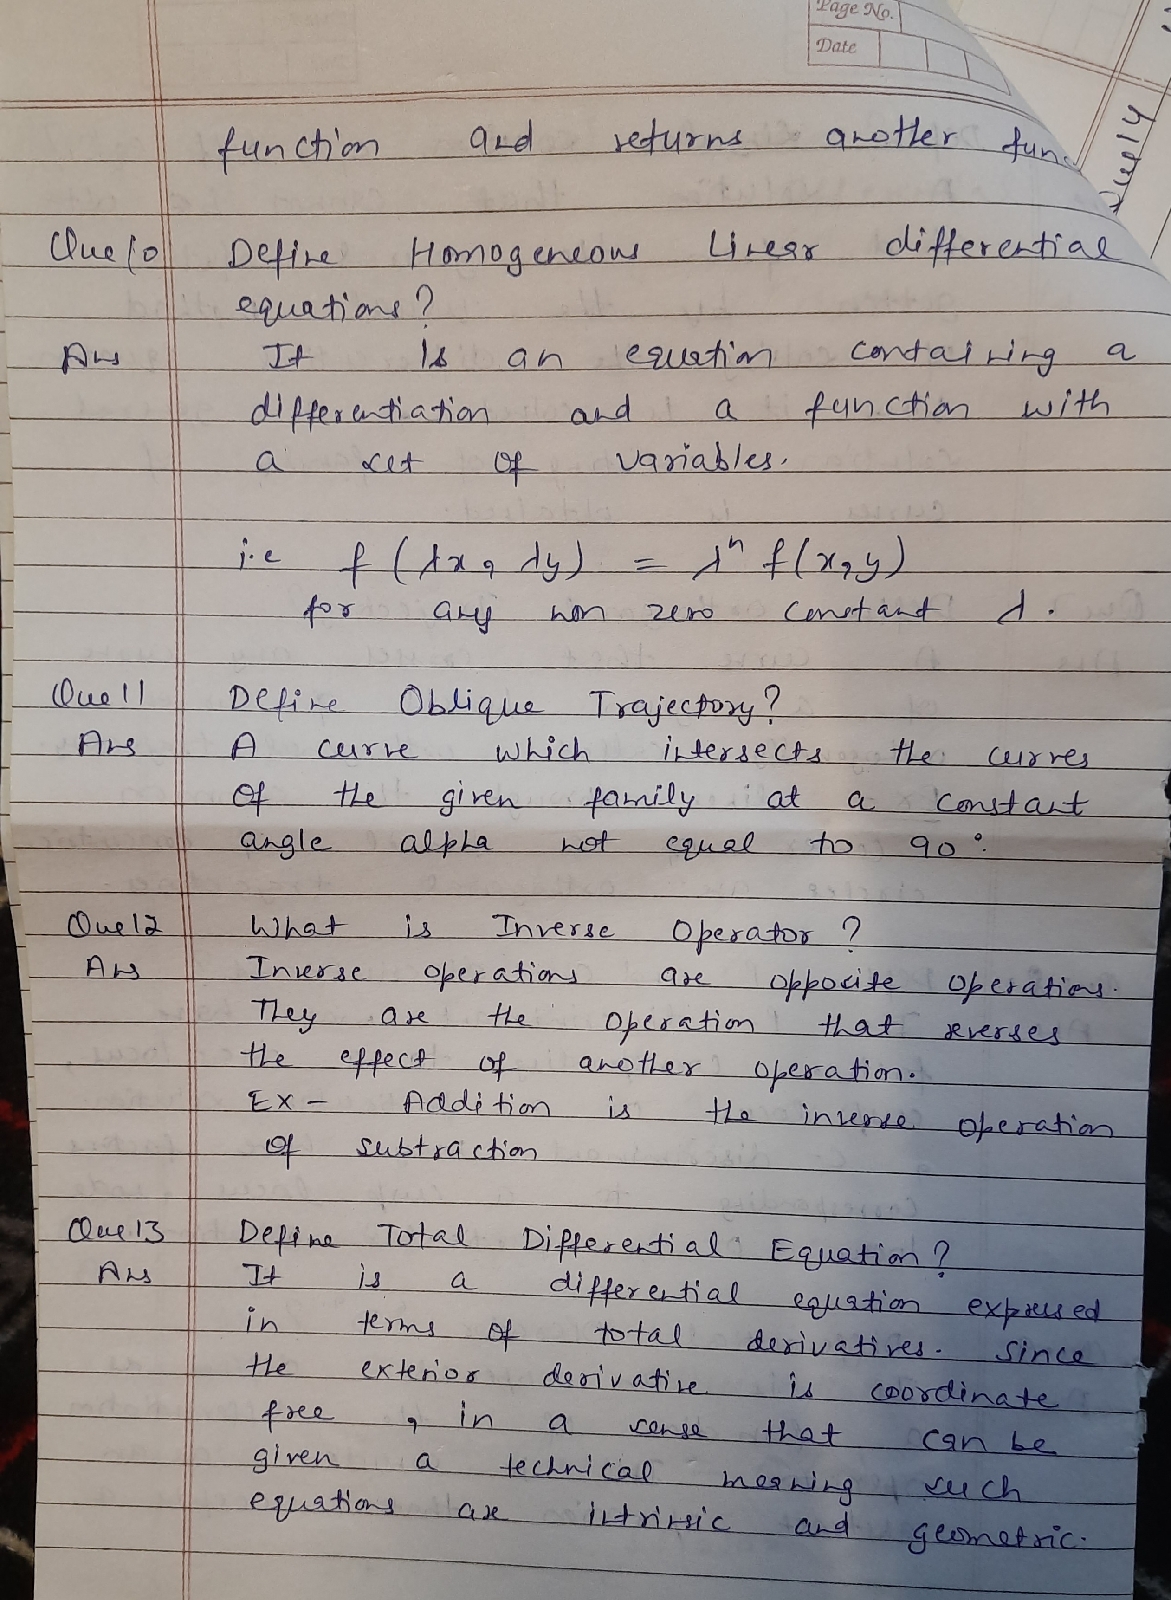 Page No.
Date
function and returns another fun
Que 14
Que 10 Define Homogeneous Linear differential
equations?
Ans It is an equation containing a
differentiation and a function with
a set of variables.
i.e f(λx, λy) = λⁿ f(x,y)
for any non zero constant λ.
Que 11 Define Oblique Trajectory?
Ans A curve which intersects the curves
of the given family at a constant
angle alpha not equal to 90°.
Que 12 What is Inverse Operator?
Ans Inverse operations are opposite operations.
They are the operation that reverses
the effect of another operation.
Ex - Addition is the inverse operation
of subtraction
Que 13 Define Total Differential Equation?
Ans It is a differential equation expressed
in terms of total derivatives. Since
the exterior derivative is coordinate
free, in a sense that can be
given a technical meaning such
equations are intrinsic and geometric.